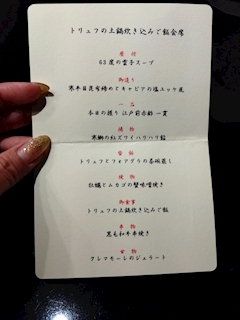 トリュフの土鍋炊き込みご飯会席
先付
63度の雲子スープ
御造り
寒平目昆布締めとキャビアの塩ユッケ風
一品
本日の握り 江戸前赤酢 一貫
鍋物
寒鰤の紅ズワイハリハリ鍋
蒸物
トリュフとフォアグラの茶碗蒸し
焼物
牡蠣とムカゴの蟹味噌焼き
御食事
トリュフの土鍋炊き込みご飯
本物
黒毛和牛串焼き
甘物
クレマモーレのジェラート